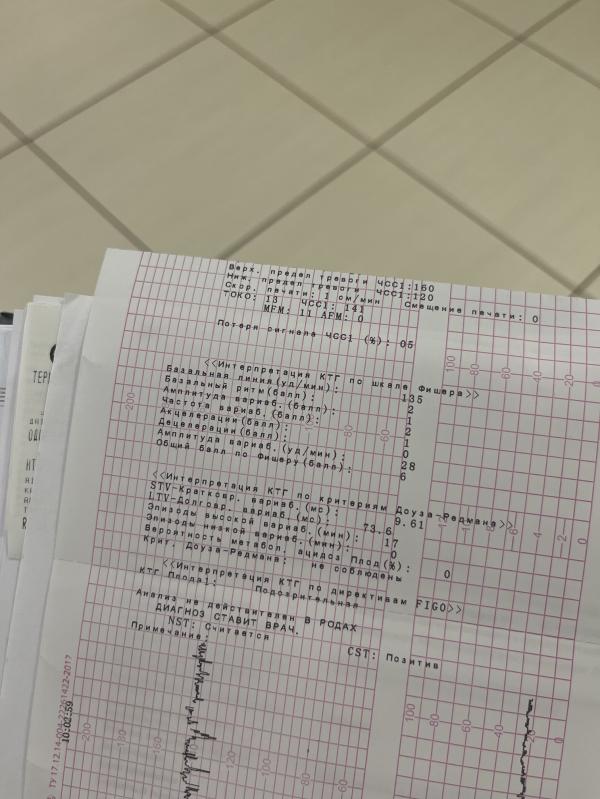 Верх. предел тревоги ЧСС1:160
Ниж. предел тревоги ЧСС1:120
Скор. печати: 1 см/мин Смещение печати: 0
ТОКО: 13 ЧСС1: 141
MFM: 11 AFM: 0
Потеря сигнала ЧСС1 (%): 05
<<Интерпретация КТГ по шкале Фишера>>
Базальная линия(уд/мин): 135
Базальный ритм(балл): 2
Амплитуда вариаб.(балл): 1
Частота вариаб.(балл): 2
Акцелерации(балл): 1
Децелерации(балл): 0
Амплитуда вариаб.(уд/мин): 28
Общий балл по Фишеру(балл): 6
<<Интерпретация КТГ по критериям Доуза-Редмана>>
STV-Кратковр. вариаб.(мс): 9.61
LTV-Долговр. вариаб.(мс): 73.6
Эпизоды высокой вариаб.(мин): 17
Эпизоды низкой вариаб.(мин): 0
Вероятность метабол. ацидоз Плод(%): 0
Крит. Доуза-Редмана: не соблюдены
<<Интерпретация КТГ по директивам FIGO>>
КТГ Плода1: Подозрительная
Анализ не действителен В РОДАХ
ДИАГНОЗ СТАВИТ ВРАЧ.
NST: Считается CST: Позитив
Примечание:
10:02:59
200
100
80
60
20
0